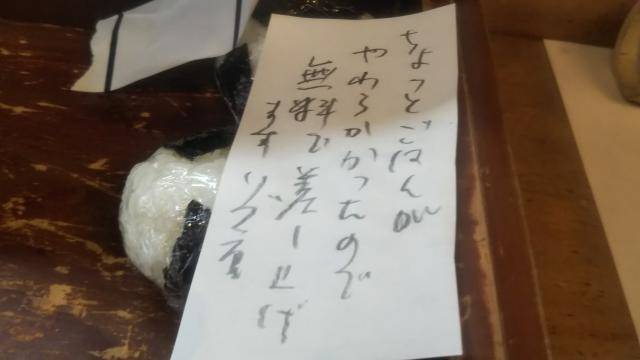 ちょっとごはんが
やわらかかったので
無料で差し上げ
ます